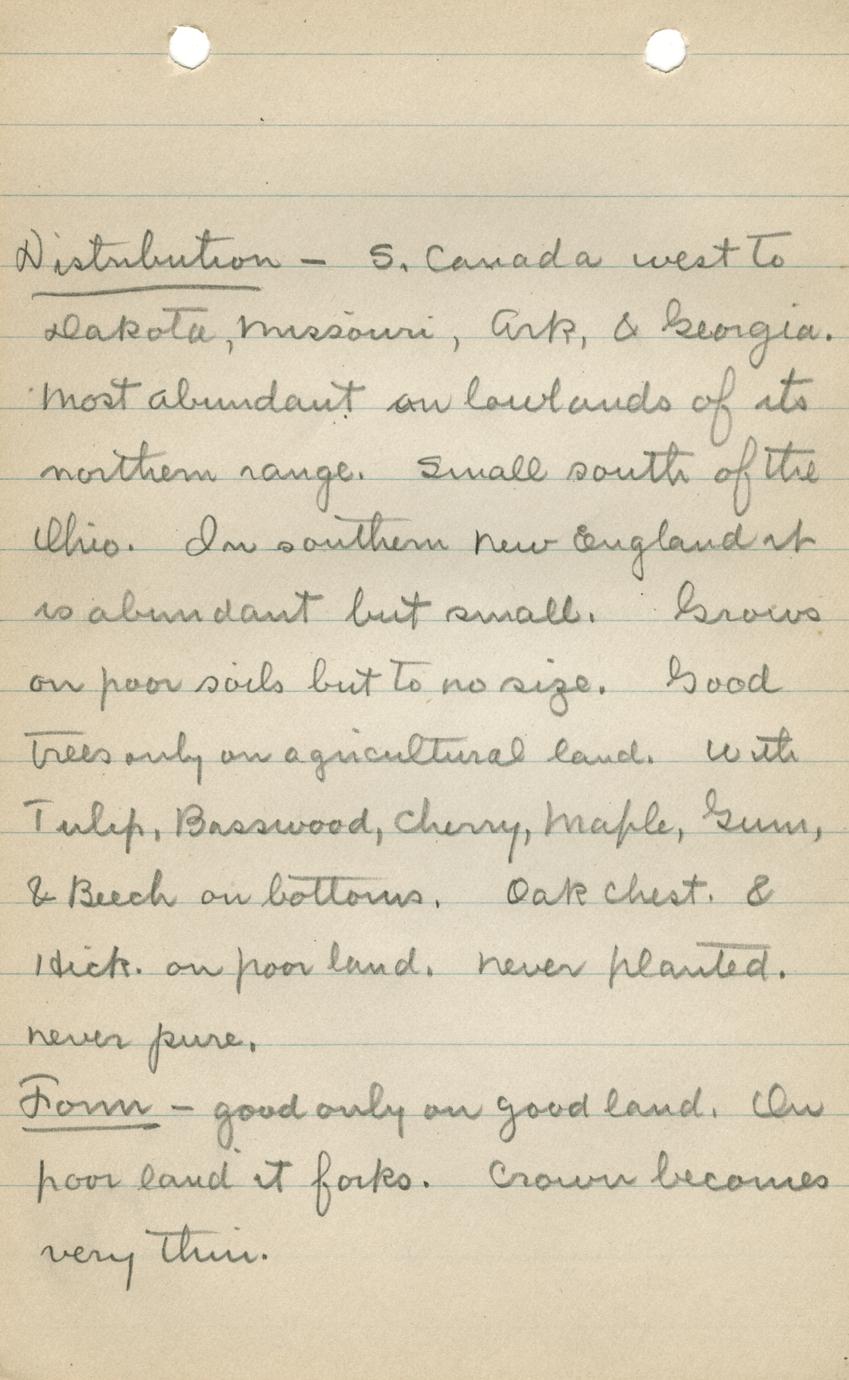 Distribution - S. Canada west to
Dakota, Missouri, Ark, & Georgia.
Most abundant on lowlands of its
northern range. Small south of the
Ohio. In southern New England it
is abundant but small. Grows
on poor soils but to no size. Good
trees only on agricultural land. With
Tulip, Basswood, Cherry, Maple, Gum,
& Beech on bottoms. Oak Chest. &
Hick. on poor land. Never planted.
Never pure.
Form - good only on good land. On
poor land it forks. Crown becomes
very thin.